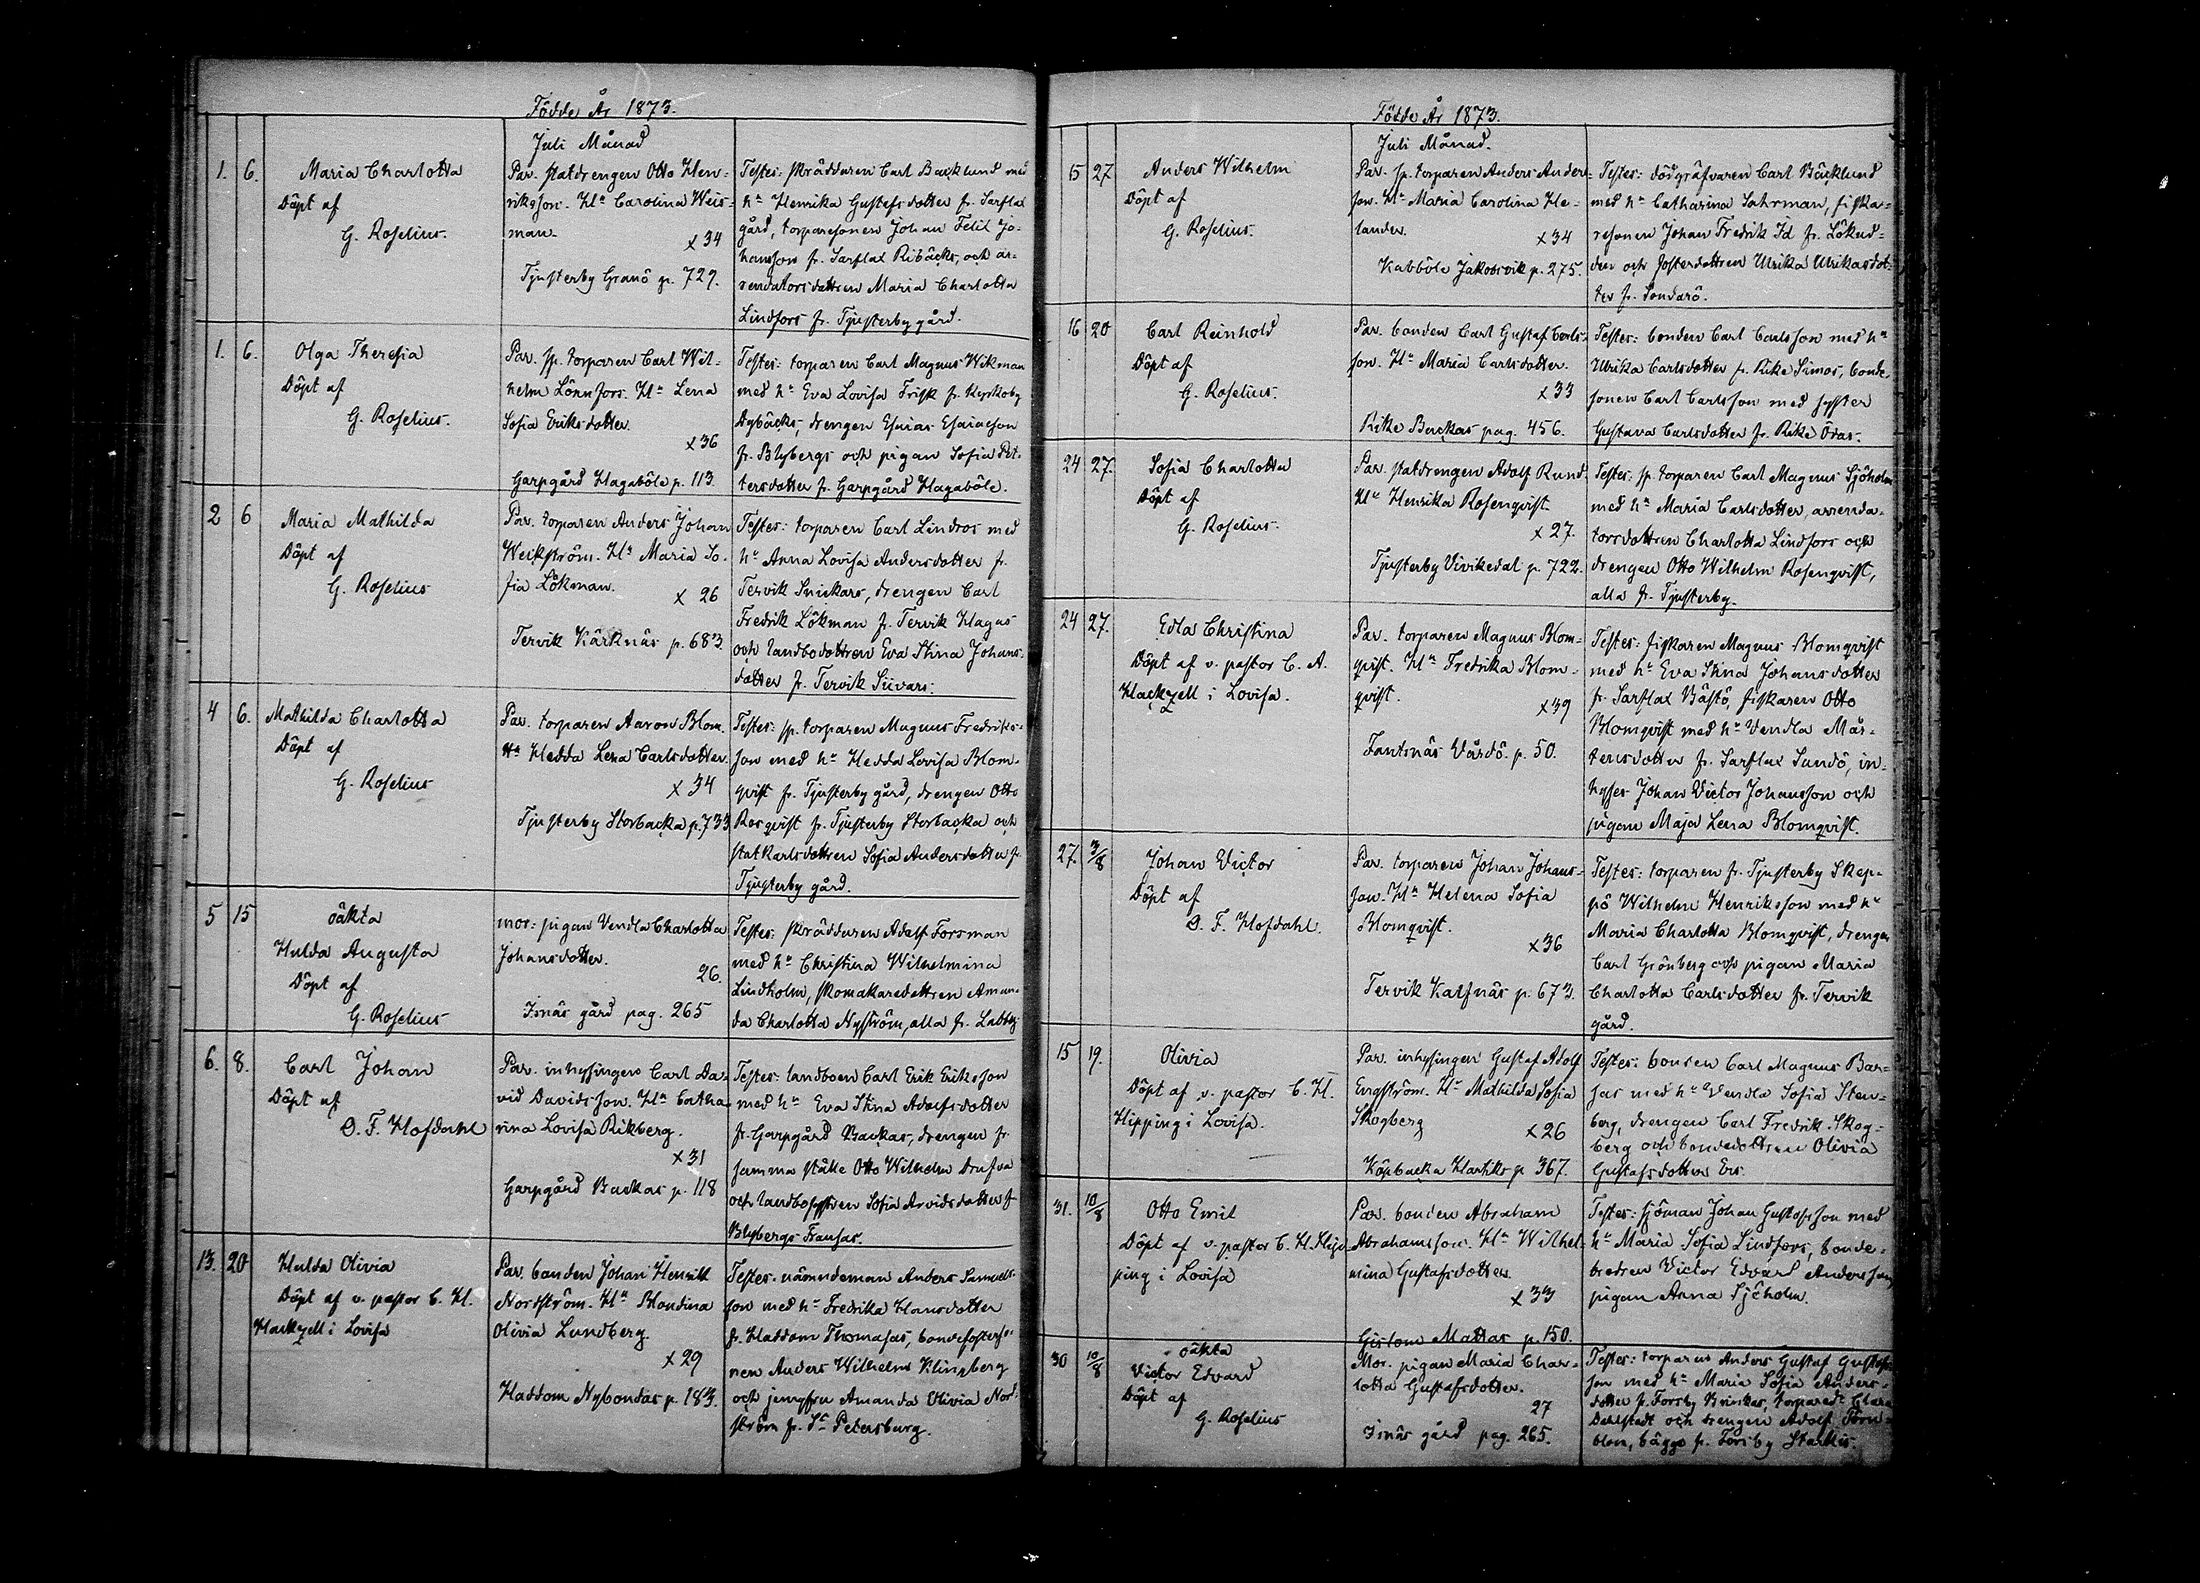 Födde År 1873.
Juli Månad
1. 6. Maria Charlotta
Döpt af
G. Roselius.
Par. statdrengen Otto Hen-
riksson. Hn Carolina Weis-
man.
x34
Tjusterby Granö p. 729.
Testes: skräddaren Carl Backlund med
hn Henrika Gustafsdotter fr. Sarflax
gård, torparesonen Johan Felix Jo-
hansson fr. Sarflax Ribäcks, och ar-
rendatorsdottren Maria Charlotta
Lindfors fr. Tjusterby gård.
1. 6. Olga Theresia
Döpt af
G. Roselius.
Par. sp. torparen Carl Wil-
helm Lönnfors. Hn Lena
Sofia Eriksdotter.
x36
Garpgård Hagaböle p. 113.
Testes: torparen Carl Magnus Wikman
med hn Eva Lovisa Frisk fr. Kyrkoby
Dybäcks, drengen Esaias Esaiasson
fr. Blybergs och pigan Sofia Pet-
tersdotter fr. Garpgård Hagaböle.
2 6 Maria Mathilda
Döpt af
G. Roselius
Par. torparen Anders Johan
Weikström. Hn Maria So-
fia Lökman.
x 26
Tervik Kärknäs p. 683.
Testes: torparen Carl Lindros med
hn Anna Lovisa Andersdotter fr.
Tervik Snikars, drengen Carl
Fredrik Lökman fr. Tervik Hagas
och landbodottren Eva Stina Johans-
dotter fr. Tervik Siivars.
4 6. Mathilda Charlotta
Döpt af
G. Roselius
Par. torparen Aaron Blom.
Hn Hedda Lena Carlsdotter.
x34
Tjusterby Storbacka p. 733
Testes: sp. torparen Magnus Fredriks-
son med hn Hedda Lovisa Blom-
qvist fr. Tjusterby gård, drengen Otto
Rosqvist fr. Tjusterby Storbacka och
statkarlsdottren Sofia Andersdotter fr.
Tjusterby gård.
5 15 oäkta
Hulda Augusta
Döpt af
G. Roselius
mor: pigan Vendla Charlotta
Johansdotter.
26.
Isnäs gård pag. 265
Testes: skräddaren Adolf Forsman
med hn Christina Wilhelmina
Lindholm, skomakaredottren Aman-
da Charlotta Nyström, alla fr. Labby
6. 8. Carl Johan
Döpt af
D. F. Hofdahl
Par. inhysingen Carl Da-
vid Davidsson. Hn Catha-
rina Lovisa Rikberg.
x31
Garpgård Backas p. 118
Testes: landboen Carl Erik Eriksson
med hn Eva Stina Adolfsdotter
fr. Garpgård Backas, drengen fr.
samma ställe Otto Wilhelm Drufva
och landbosystren Sofia Arvidsdotter fr
Blybergs Fransas.
13. 20 Hulda Olivia
Döpt af v. pastor C. H.
Hackzell i Lovisa
Par. bonden Johan Henrik
Nordström. Hn Blondina
Olivia Lundberg.
x29
Haddom Nybondas p. 183.
Testes. nämndeman Anders Samuels-
son med hn Fredrika Hansdotter
fr. Haddom Thomasas, bondefosterso-
nen Anders Wilhelm Klingberg
och jungfru Amanda Olivia Nord-
ström fr. St Petersburg.
Födde År 1873.
Juli Månad.
15 27 Anders Wilhelm
Döpt af
G. Roselius.
Par. sp. torparen Anders Anders-
son. Hn Maria Carolina He-
lander.
x34
Kabböle Jakobsvik p. 275.
Testes: dödgräfvaren Carl Bäcklund
med hn Catharina Sahrman, fiska-
resonen Johan Fredrik Id fr. Lökud-
den och fosterdottren Ulrika Ulrikasdot-
ter fr. Sondarö.
16 20 Carl Reinhold
Döpt af
G. Roselius.
Par. bonden Carl Gustaf Carls-
son. Hn Maria Carlsdotter.
x33
Rike Backas pag. 456.
Testes: bonden Carl Carlsson med hn
Ulrika Carlsdotter fr. Rike Simos, bonde
sonen Carl Carlsson med syster
Gustava Carlsdotter fr. Rike Ödas.
24 27. Sofia Charlotta
Döpt af
G. Roselius.
Par. statdrengen Adolf Rund.
Hn Henrika Rosenqvist.
x27.
Tjusterby Vivikedal p. 722.
Testes: sp. torparen Carl Magnus Sjöholm
med hn Maria Carlsdotter, arrenda-
torsdottren Charlotta Lindfors och
drengen Otto Wilhelm Rosenqvist,
alla fr. Tjusterby.
24 27. Edla Christina
Döpt af v. pastor C. A.
Hackzell i Lovisa.
Par. torparen Magnus Blom-
qvist. Hn Fredrika Blom-
qvist.
x39
Fantsnäs Vårdö. p. 50.
Testes: fiskaren Magnus Blomqvist
med hn Eva Stina Johansdotter
fr. Sarflax Båstö, fiskaren Otto
Blomqvist med hn Vendla Mår-
tensdotter fr. Sarflax Sundö, in-
hyses Johan Victor Johansson och
pigan Maja Lena Blomqvist.
27. 3/8 Johan Victor
Döpt af
D. F. Hofdahl.
Par. torparen Johan Johans-
son. Hn Helena Sofia
Blomqvist.
x36
Tervik Kalfnäs p. 673.
Testes: torparen fr. Tjusterby Skep-
pö Wilhelm Henriksson med hn
Maria Charlotta Blomqvist, drengen
Carl Grönberg och pigan Maria
Charlotta Carlsdotter fr. Tervik
gård.
15 19. Olivia
Döpt af v. pastor C. H.
Hipping i Lovisa.
Par. inhysingen Gustaf Adolf
Engström. Hn Mathilda Sofia
Skogberg
x26
Köpbacka Hartiks p 367.
Testes: bonden Carl Magnus Bar-
sas med hn Vendla Sofia Sten-
berg, drengen Carl Fredrik Skog-
berg och bondedottren Olivia
Gustafsdotter Ers.
31. 10/8 Otto Emil
Döpt af v. pastor C. H. Hip-
ping i Lovisa
Par. bonden Abraham
Abrahamsson. Hn Wilhel-
mina Gustafsdotter.
x33
Gislom Mattas p. 150.
Testes: sjöman Johan Gustafsson med
hn Maria Sofia Lindfors, bonde-
bredren Victor Edvard Andersson,
pigan Anna Sjöholm.
30 10/8 oäkta
Victor Edvard
Döpt af
G. Roselius
Mor. pigan Maria Char-
lotta Gustafsdotter.
27
Isnäs gård pag. 265.
Testes: torparen Anders Gustaf Gustafs-
son med hn Maria Sofia Anders-
dotter fr. Forsby Brinkas, torparedr Clara
Dahlstedt och drengen Adolf Törn-
blom, bägge fr. Forsby Starkis.